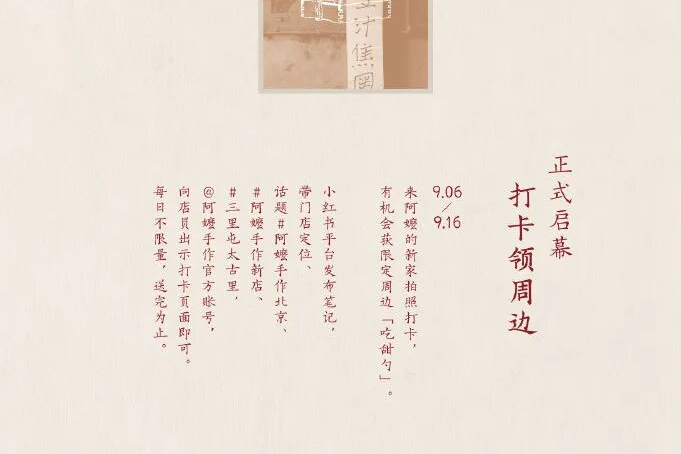 汁焦圈
正式启幕
打卡领周边
9.06
/
9.16
来阿嬷的新家拍照打卡，
有机会获限定周边「吃甜勺」。
小红书平台发布笔记，
带门店定位、
话题#阿嬷手作北京、
#阿嬷手作新店、
#三里屯太古里，
@阿嬷手作官方账号，
向店员出示打卡页面即可。
每日不限量，送完为止。